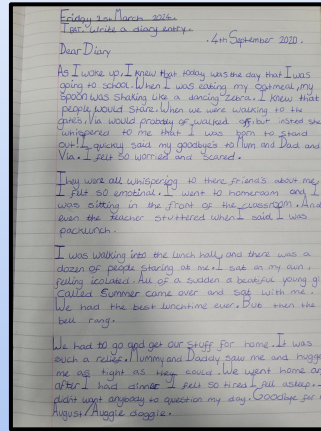 Friday 1st March 2024.
TBAT: Write a diary entry.
4th September 2020.
Dear Diary
As I woke up, I knew that today was the day that I was
going to school. When I was eating my oatmeal, my
spoon was shaking like a dancing zebra. I knew that
people would stare. When we were walking to the
gates, Via would probably of walked off, but insted she
whispered to me that I was born to stand
out! I quickly said my goodbye's to Mum and Dad and
Via. I felt so worried and scared.
They were all whispering to there friend's about me,
I felt so emotinal. I went to homeroom and I
was sitting in the front of the classroom. And
even the teacher stuttered when I said I was
packlunch.
I was walking into the lunch hall, and there was a
dozen of people staring at me. I sat on my own,
feeling icolated. All of a sudden a beatiful young gi
called Summer came over and sat with me.
We had the best lunchtime ever. But then the
bell rang.
We had to go and get our stuff for home. It was
such a relief. Mummy and Daddy saw me and hugge
me as tight as they could. We went home an
after I had dinner I felt so tired I fell asleep. I
didnt want anybody to question my day. Goodbye for
August/Auggie doggie.